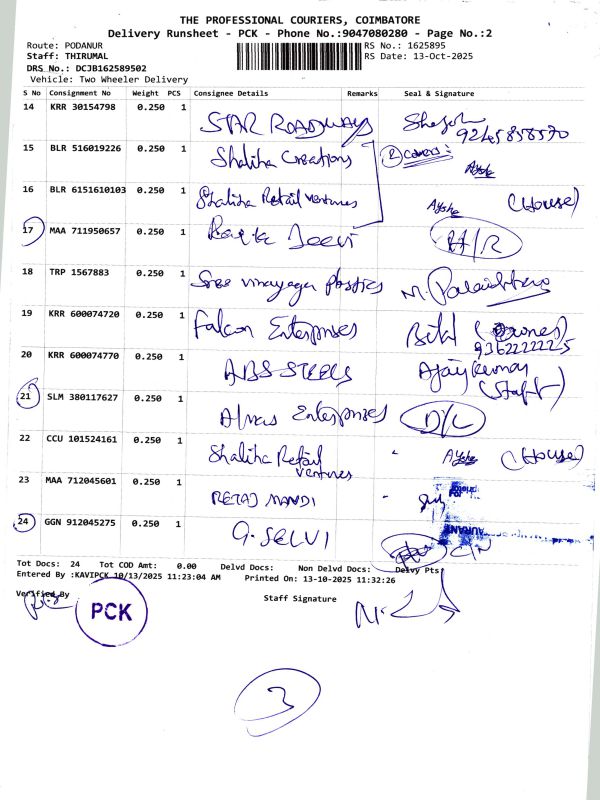 THE PROFESSIONAL COURIERS, COIMBATORE
Delivery Runsheet - PCK - Phone No.:9047080280 - Page No.:2
Route: PODANUR RS No.: 1625895
Staff: THIRUMAL RS Date: 13-Oct-2025
DRS No.: DCJB162589502
Vehicle: Two Wheeler Delivery
S No Consignment No Weight PCS Consignee Details Remarks Seal & Signature
14 KRR 30154798 0.250 1 STAR ROADWAYS
9245858570
15 BLR 516019226 0.250 1 Shaliha Creations 2 covers:
Ayshe
16 BLR 6151610103 0.250 1 Shaliha Retail ventures Ayshe (House)
17 MAA 711950657 0.250 1 Jeevi H/R
18 TRP 1567883 0.250 1 Sree vinayaga plastics M.
19 KRR 600074720 0.250 1 Falcon Enterprises (Owner)
9362222225
20 KRR 600074770 0.250 1 ABS STEELS Ajay Kumar
(Staff)
21 SLM 380117627 0.250 1 Almas Enterprises D/L
22 CCU 101524161 0.250 1 Shaliha Retail ventures Ayshe (House)
23 MAA 712045601 0.250 1 RETAJ MANDI
24 GGN 912045275 0.250 1 G. SELVI
Tot Docs: 24 Tot COD Amt: 0.00 Delvd Docs: Non Delvd Docs: Delvy Pts:
Entered By :KAVIPCK 10/13/2025 11:23:04 AM Printed On: 13-10-2025 11:32:26
Verified By Staff Signature
PCK
3